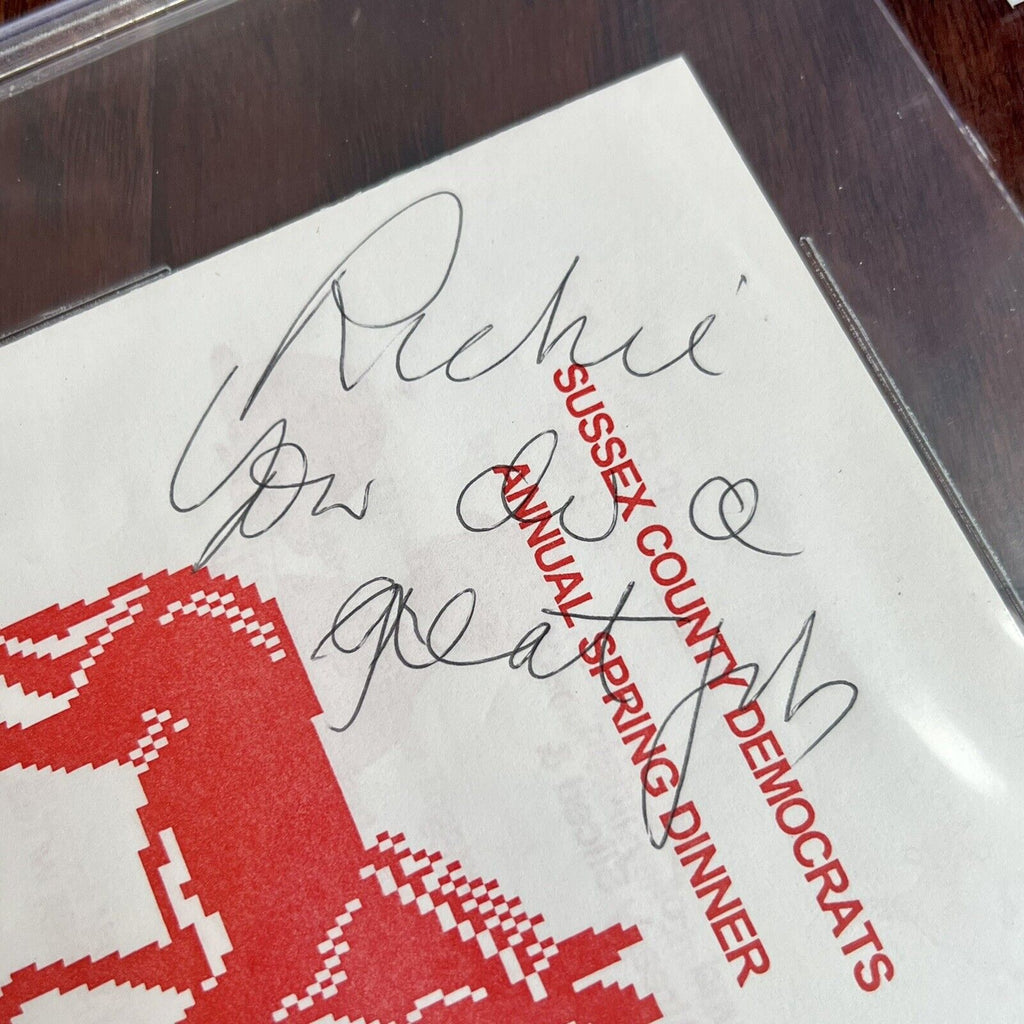 Richie
You do a
great job
SUSSEX COUNTY DEMOCRATS
ANNUAL SPRING DINNER